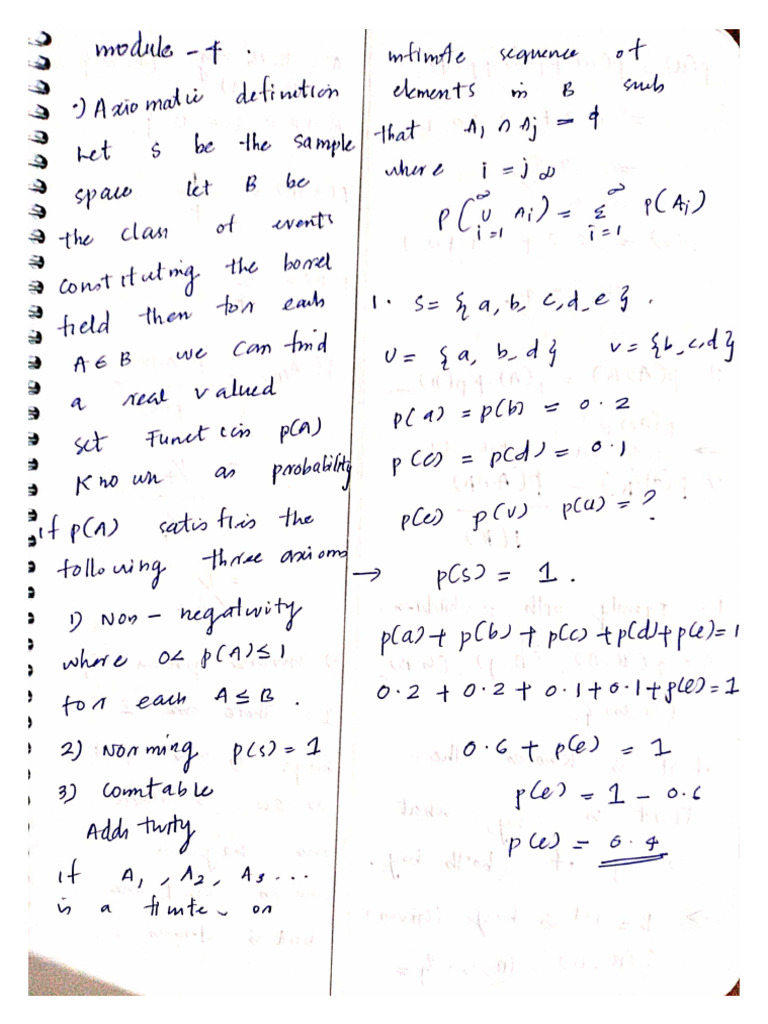 module - 4.
·) Axiomatic definition
Let S be the sample
space let B be
the class of events
constituting the borrel
field then for each
A ∈ B we can find
a real valued
set Function p(A)
Known as probability
if p(A) satisfies the
following three axioms
1) Non - negativity
where 0 < p(A) ≤ 1
for each A ≤ B.
2) Norming p(s) = 1
3) Countable
Additivity
if A₁, A₂, A₃ ...
is a finite or
infinite sequence of
elements in B such
that Aᵢ ∩ Aj = ϕ
where i = j ∞
P(∞∪i=1 Ai) = ∞Σi=1 P(Ai)
1. S = {a, b, c, d, e}.
U = {a, b, d} V = {b, c, d}
p(a) = p(b) = 0.2
p(c) = p(d) = 0.1
p(e) p(v) p(u) = ?
→ p(s) = 1.
p(a) + p(b) + p(c) + p(d) + p(e) = 1
0.2 + 0.2 + 0.1 + 0.1 + p(e) = 1
0.6 + p(e) = 1
p(e) = 1 - 0.6
p(e) = 0.4